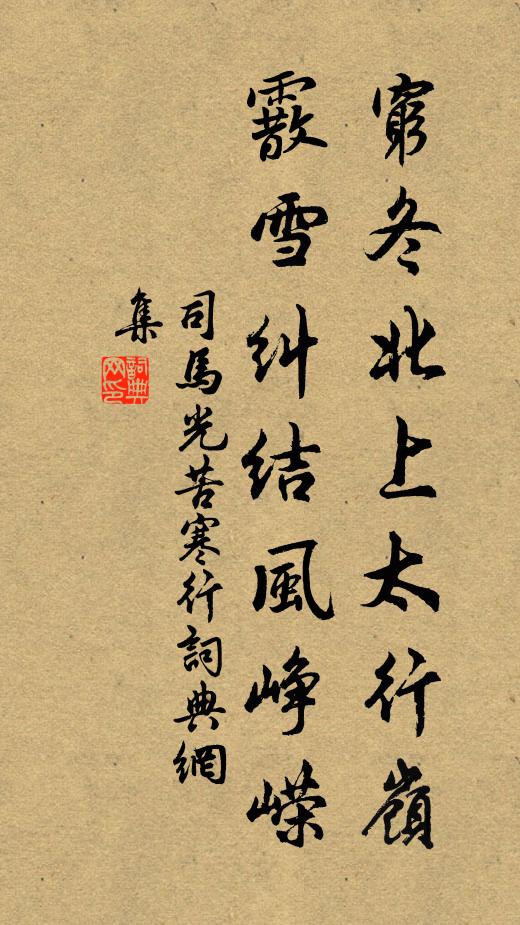 窮冬北上太行嶺
霰雪糾結風峥嶸
司馬光苦寒行詞典網
集
詞典
网印